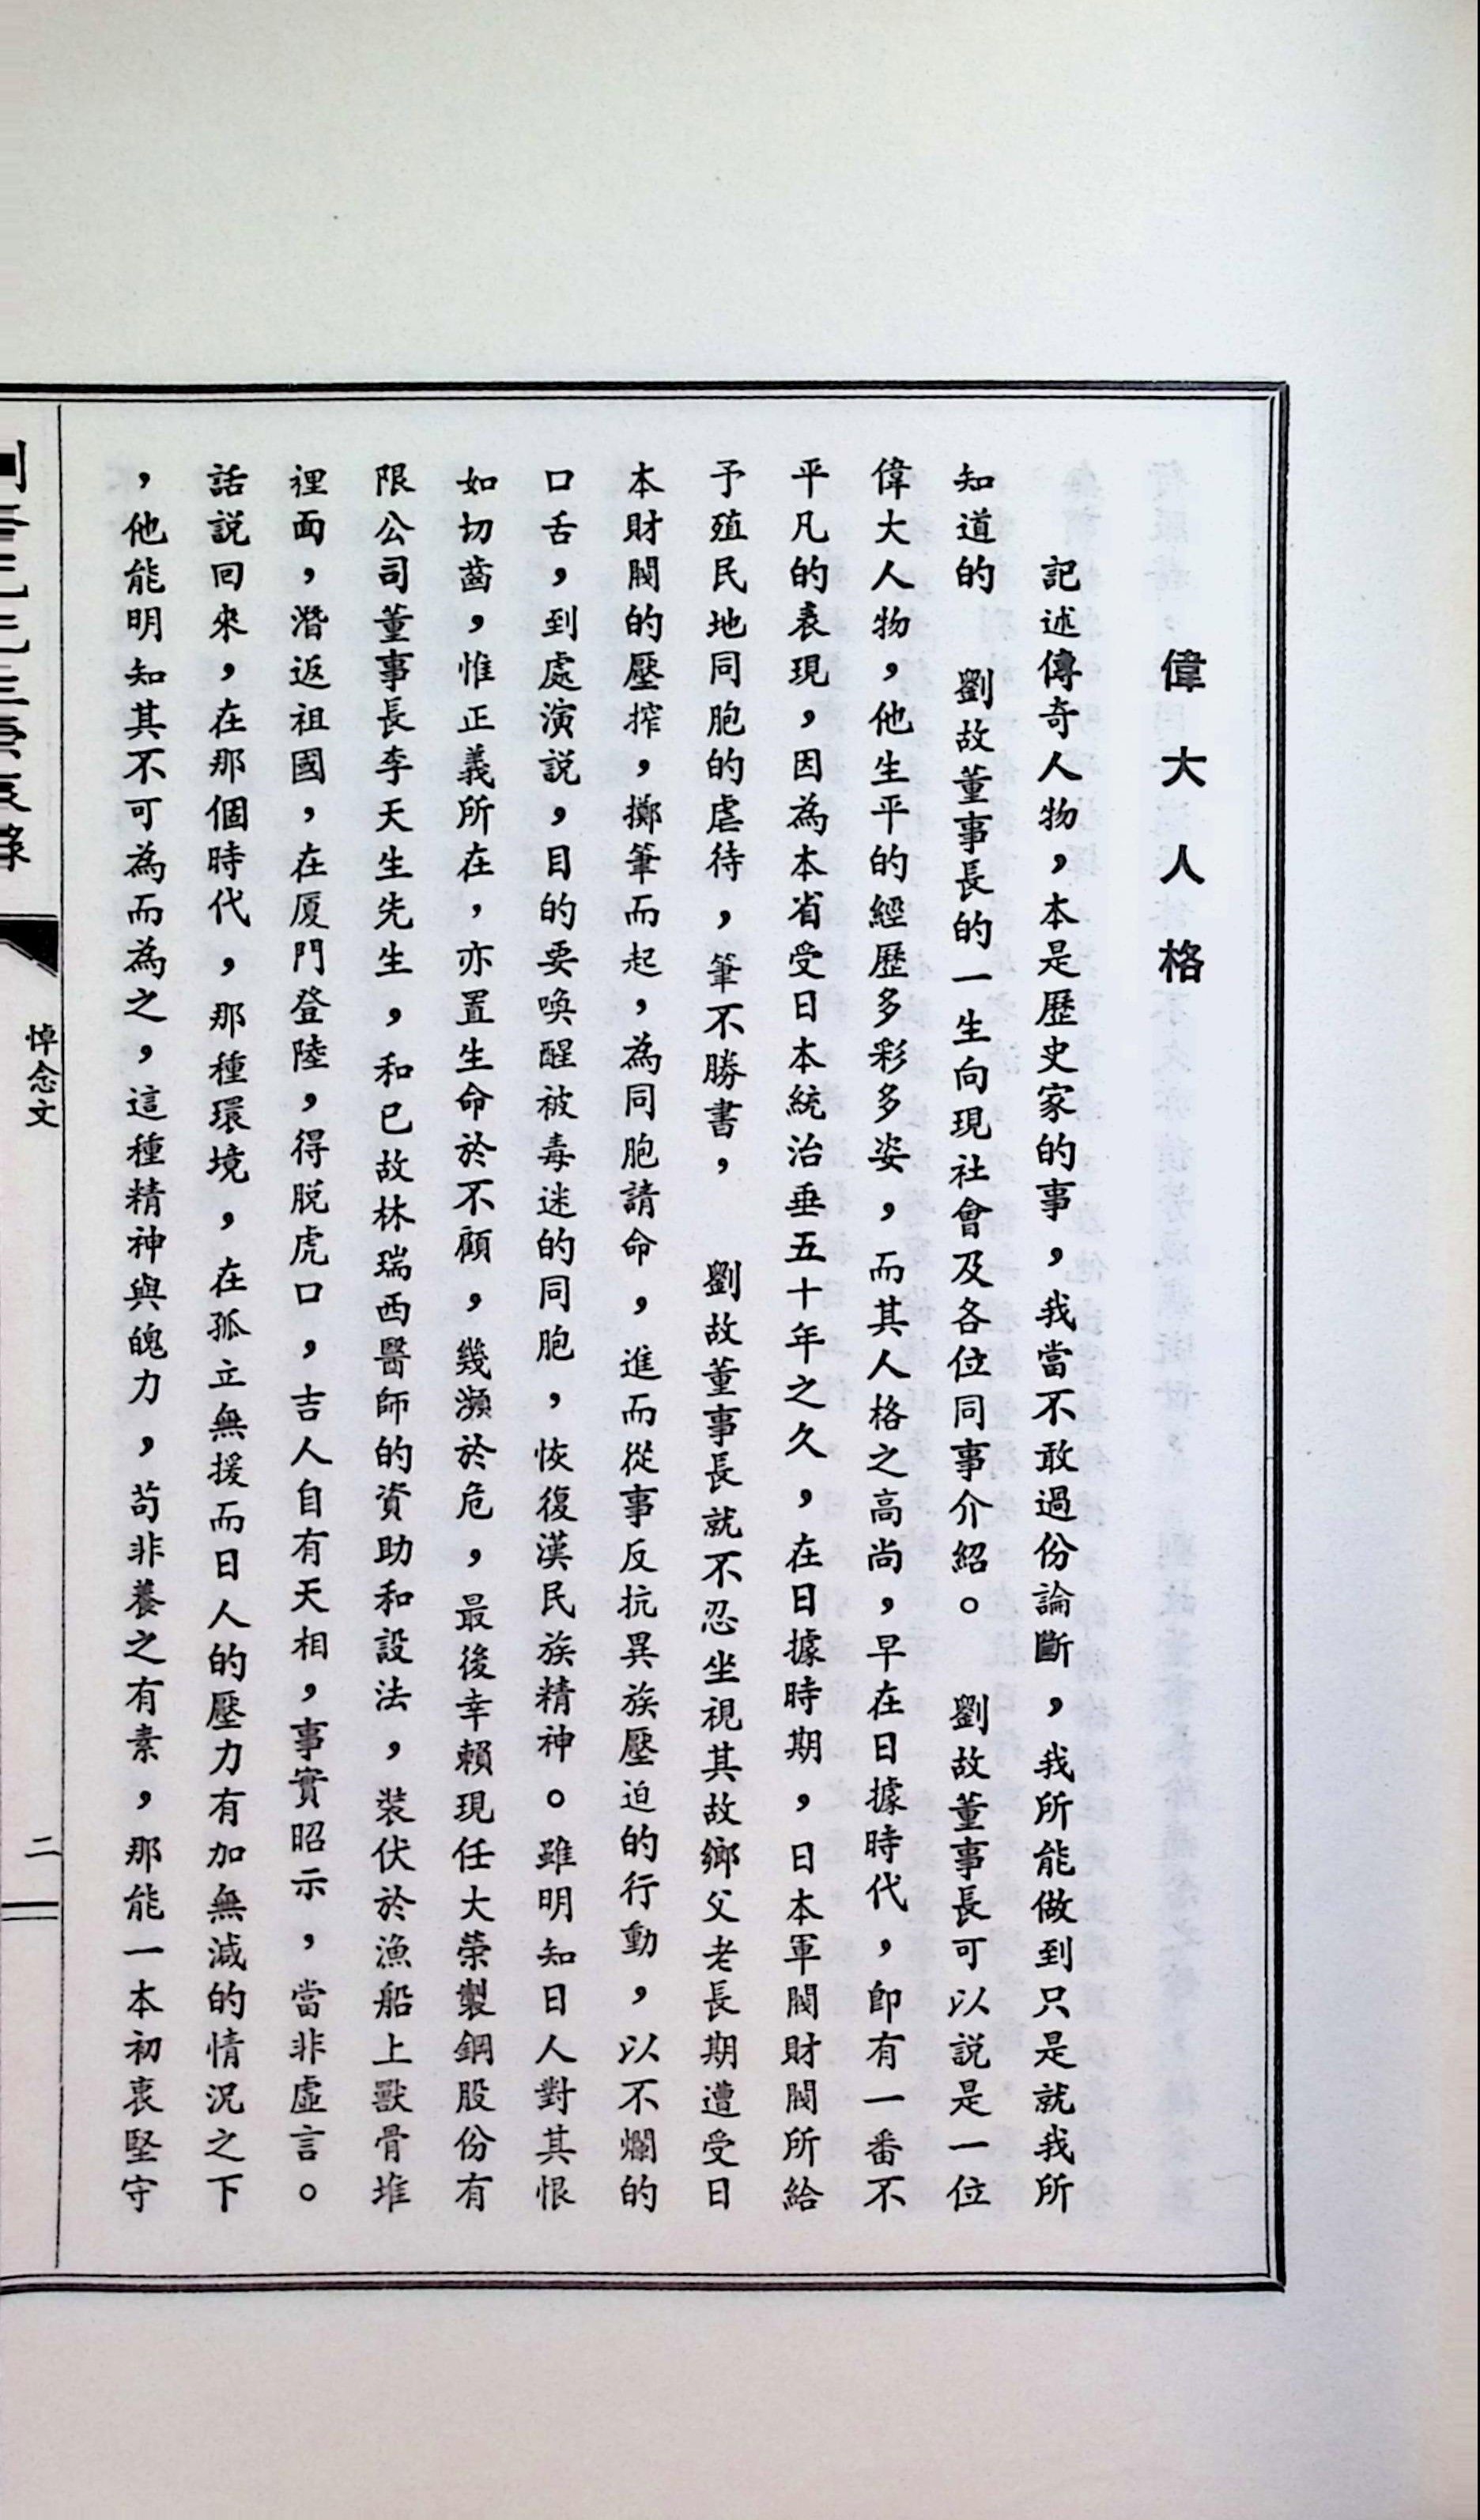 偉大人格
記述傳奇人物，本是歷史家的事，我當不敢過份論斷，我所能做到只是就我所
知道的　劉故董事長的一生向現社會及各位同事介紹。　劉故董事長可以說是一位
偉大人物，他生平的經歷多彩多姿，而其人格之高尚，早在日據時代，即有一番不
平凡的表現，因為本省受日本統治垂五十年之久，在日據時期，日本軍閥財閥所給
予殖民地同胞的虐待，筆不勝書，　劉故董事長就不忍坐視其故鄉父老長期遭受日
本財閥的壓搾，擲筆而起，為同胞請命，進而從事反抗異族壓迫的行動，以不爛的
口舌，到處演說，目的要喚醒被毒迷的同胞，恢復漢民族精神。雖明知日人對其恨
如切齒，惟正義所在，亦置生命於不顧，幾瀕於危，最後幸賴現任大榮製鋼股份有
限公司董事長李天生先生，和已故林瑞西醫師的資助和設法，裝伏於漁船上獸骨堆
裡面，潛返祖國，在厦門登陸，得脫虎口，吉人自有天相，事實昭示，當非虛言。
話說回來，在那個時代，那種環境，在孤立無援而日人的壓力有加無減的情況之下
，他能明知其不可為而為之，這種精神與魄力，苟非養之有素，那能一本初衷堅守
悼念文
二